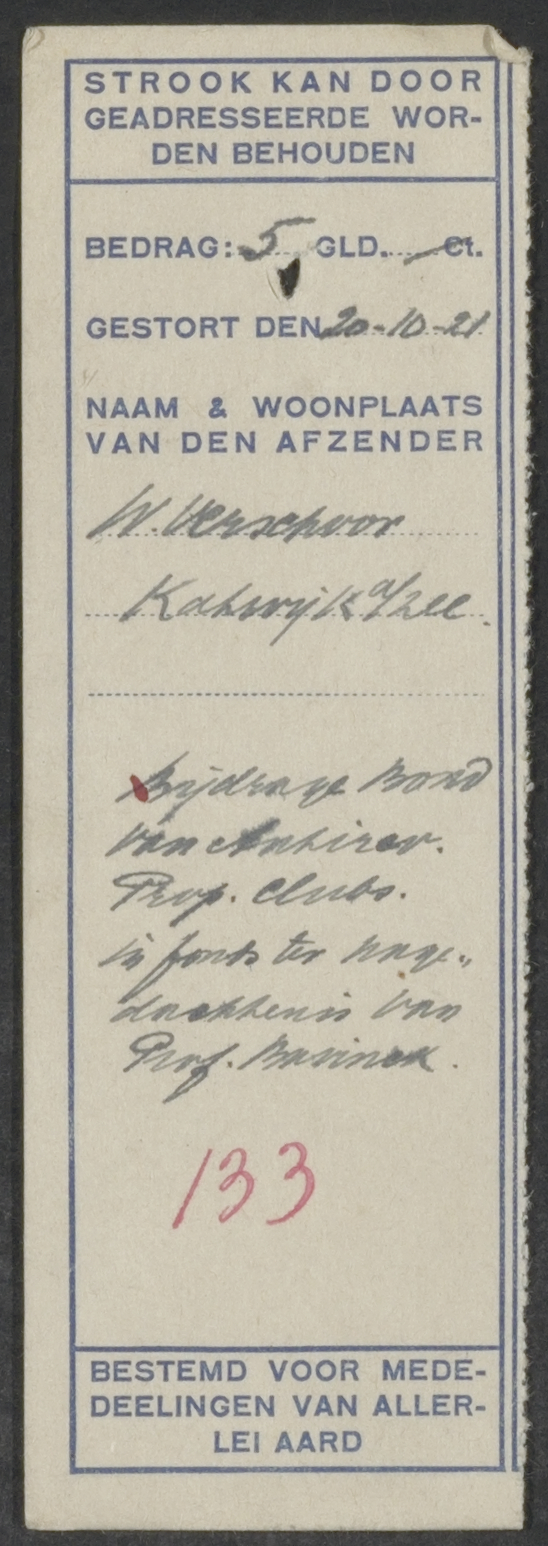 STROOK KAN DOOR
GEADRESSEERDE WOR-
DEN BEHOUDEN
BEDRAG: 5 GLD. — Ct.
GESTORT DEN 20-10-21
NAAM & WOONPLAATS
VAN DEN AFZENDER
W. Verschoor
Katwijk a/zee.
Bijdrage Bond
van Antirev.
Prop. Clubs.
in fonds ter nage„
dachtenis van
Prof. Bavinck.
133
BESTEMD VOOR MEDE-
DEELINGEN VAN ALLER-
LEI AARD